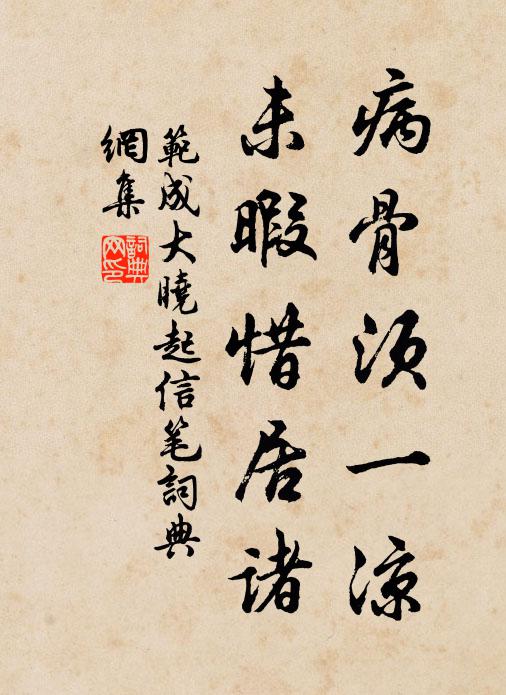 病骨须一凉
未暇惜居诸
範成大曉起信笔詞典
網集
詞典
网印